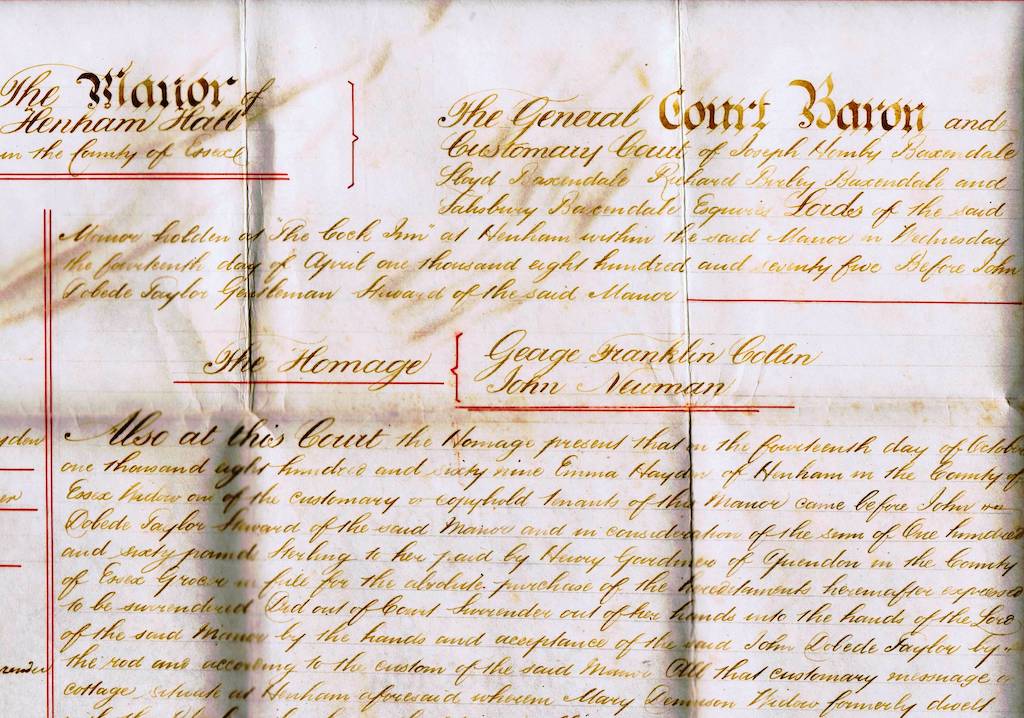 The Manor of
Henham Hall
in the County of Essex
The General Court Baron and
Customary Court of Joseph Hornby Baxendale
Lloyd Baxendale Richard Birley Baxendale and
Salisbury Baxendale Esquires Lords of the said
Manor holden at "The Cock Inn" at Henham within the said Manor on Wednesday
the fourteenth day of April one thousand eight hundred and seventy five Before John
Dobede Taylor Gentleman Steward of the said Manor
The Homage
George Franklin Collin
John Newman
Also at this Court the Homage present that on the fourteenth day of October
one thousand eight hundred and sixty nine Emma Hayden of Henham in the County of
Essex Widow one of the customary or copyhold tenants of this Manor came before John
Dobede Taylor Steward of the said Manor and in consideration of the sum of One hundred
and sixty pounds Sterling to her paid by Henry Gardiner of Quendon in the County
of Essex Grocer in full for the absolute purchase of the hereditaments hereafter expressed
to be surrendered Did out of Court Surrender out of her hands into the hands of the Lords
of the said Manor by the hands and acceptance of the said John Dobede Taylor by
the rod and according to the custom of the said Manor All that customary messuage or
cottage situate at Henham aforesaid wherein Mary Dennison Widow formerly dwelt